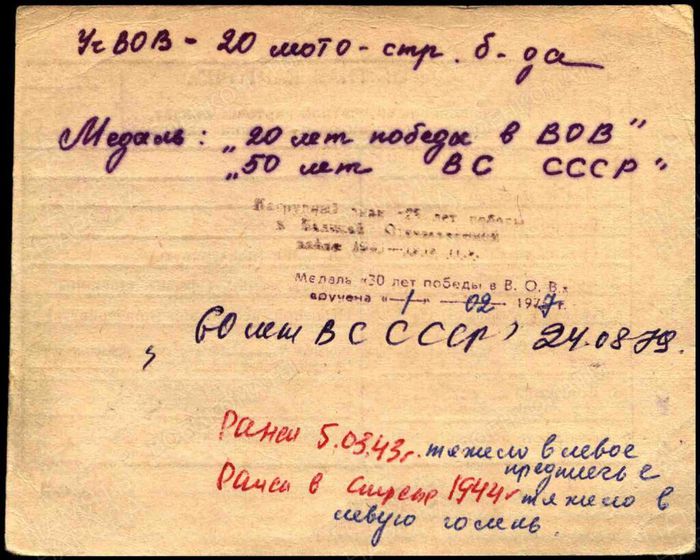 Уч ВОВ - 20 мото - стр. б-да
Медаль: „20 лет победы в ВОВ"
„50 лет ВС СССР"
Нагрудный знак «25 лет победы
в Великой Отечественной
войне
Медаль «30 лет победы в В. О. В.»
вручена «1» 02 1977 г.
„60 лет ВС СССР" 24.08.79.
Ранен 5.03.43г. тяжело в левое
предплечье
Ранен в 1944г тяжело в
левую голень.